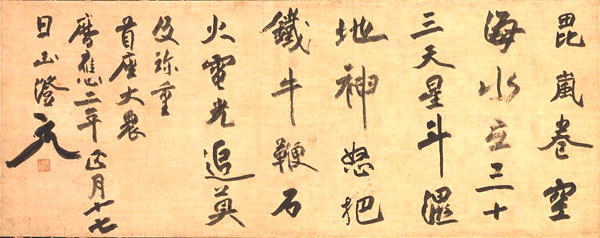 毘嵐巻空
海水立三十
三天星斗濕
地神怒把
鐵牛鞭石
火電光追莫
及珎重
首座大衆
暦應二年正月十七
日山澄